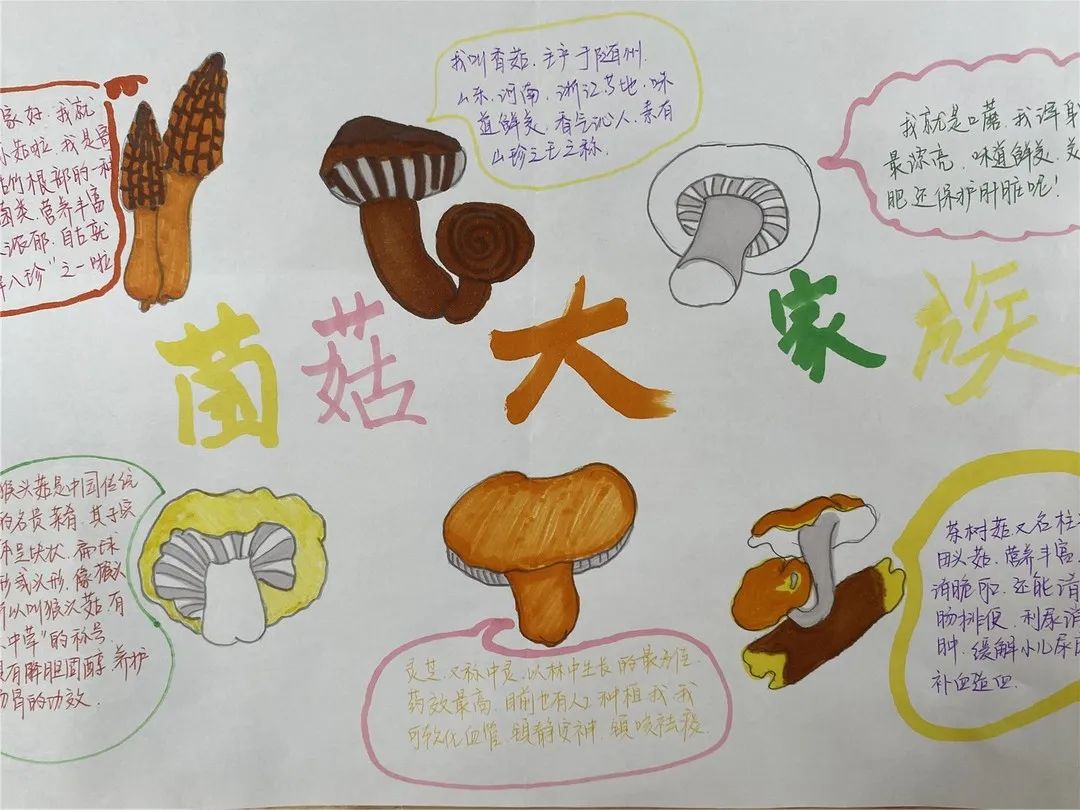 家好，我就
小菇啦，我是寄
竹根部的一种
菌类，营养丰富
浓郁，自古就
八珍"之一啦
我叫香菇，主产于随州、
山东、河南、浙江等地，味
道鲜美，香气沁人，素有
山珍之王之称。
我就是口蘑，我浑身
最漂亮，味道鲜美，
肥还保护肝脏呢！
菌菇大家族
猴头菇是中国传统
的名贵菜肴，其子实
体呈块状，扁球
形或头形，像猴头
所以叫猴头菇，有
中草"的称号，
具有降胆固醇，养护
肠胃的功效。
灵芝，又称中灵，以林中生长的最为佳，
药效最高，目前也有人工种植我，我
可软化血管，镇静安神，镇咳祛痰。
茶树菇又名柱
田头菇，营养丰富，
消脆，还能清
肠排便，利尿消
肿，缓解小儿尿
补血造血。